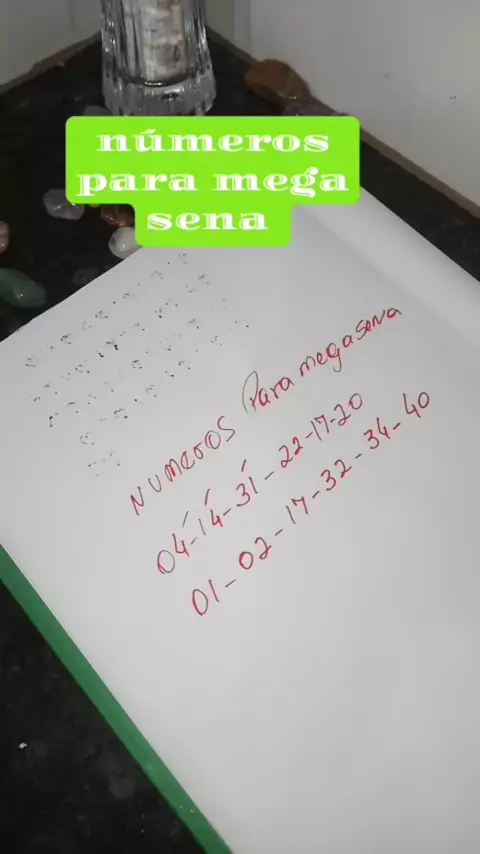 números
para mega
sena
NUMEROS Para megasena
04-14-31-22-17-20
01-02-17-32-34-40